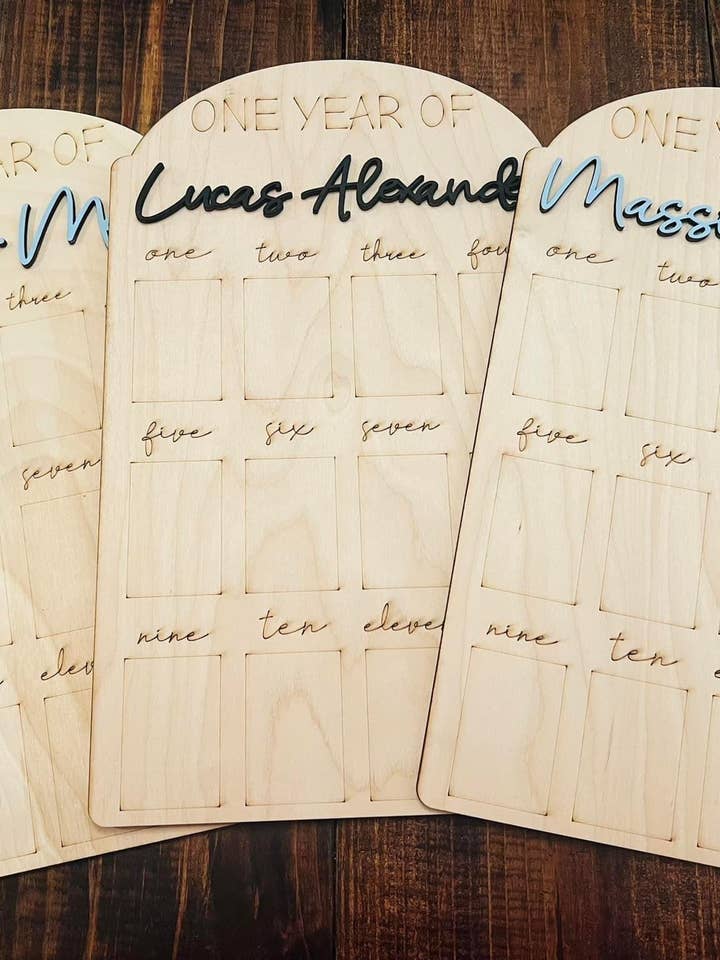 AR OF
M
three
seven
ONE YEAR OF
Lucas Alexande
one two three fou
five six seven
nine ten eleve
ONE
Mass
one two
five six
nine ten